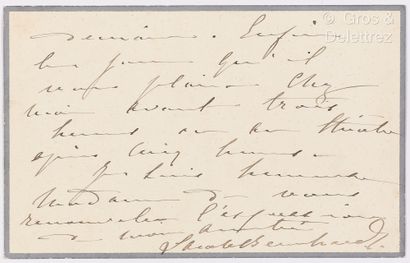 © Gros &
Delettrez
demain. Enfin
les jours qu'il
vous plaira chez
moi avant trois
heures ou au théâtre
après cinq heures.
Je suis heureuse
Madame de vous
renouveler l'expression
de mon amitié
Sarah Bernhardt.